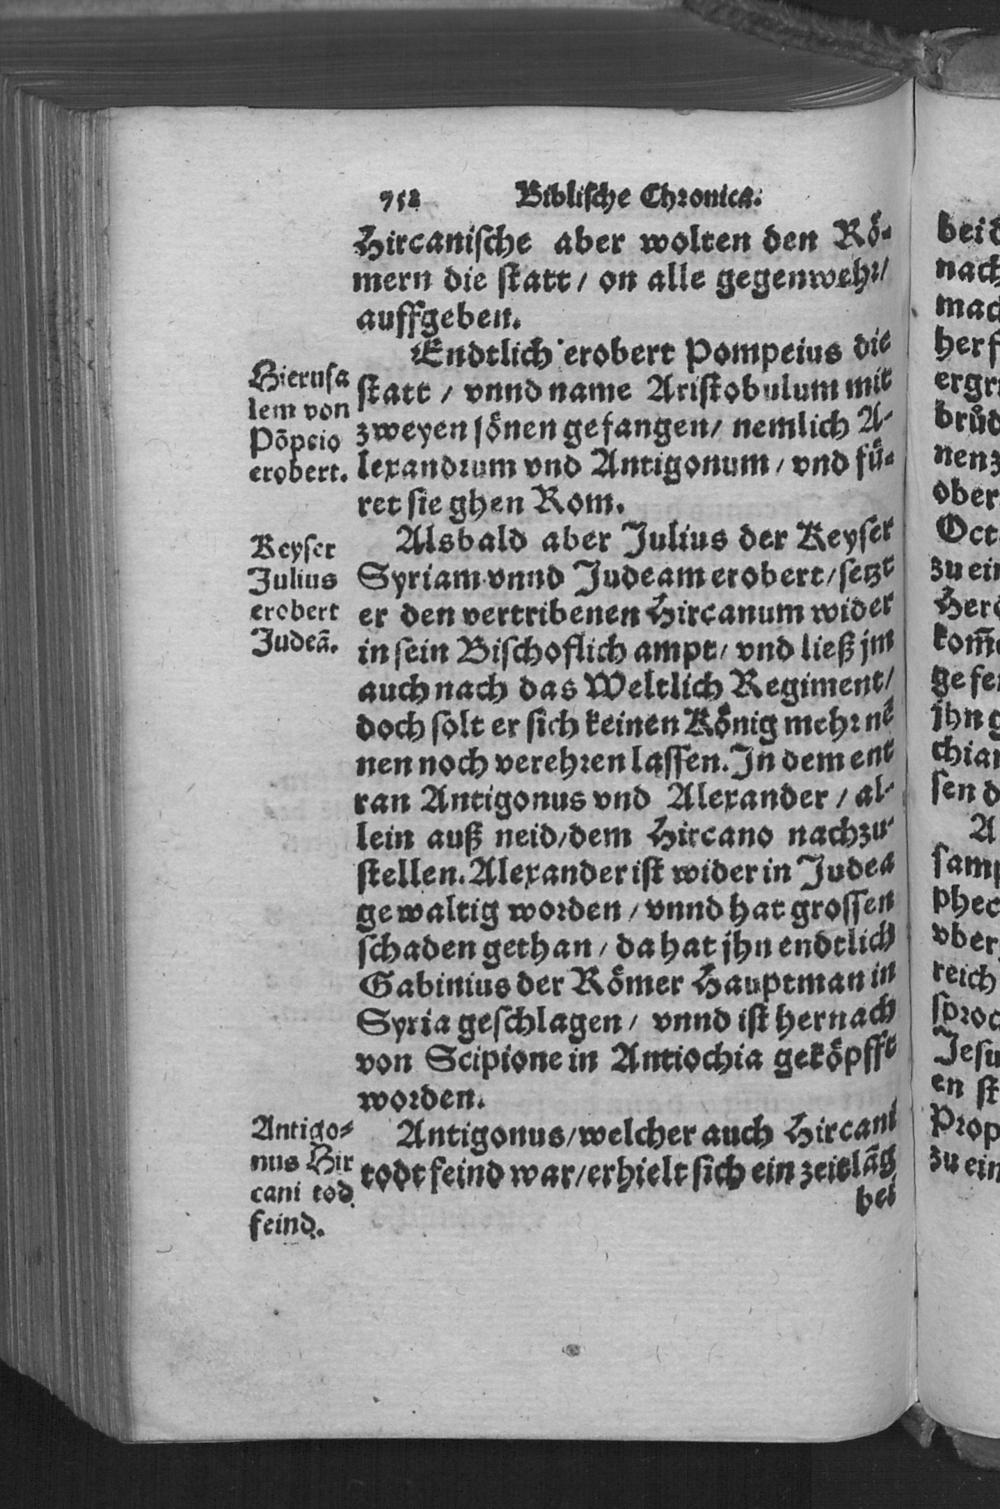 752 Biblische Chronica.
Hircanische aber wolten den Rö-
mern die statt / on alle gegenwehr/
auffgeben.
Endtlich erobert Pompeius die
statt / vnnd name Aristobulum mit
zweyen sönen gefangen / nemlich A-
lexandrum vnd Antigonum / vnd fü-
ret sie ghen Rom.
Hierusa
lem von
Põpeio
erobert.
Alsbald aber Julius der Keyser
Syriam vnnd Judeam erobert / setzt
er den vertribenen Hircanum wider
in sein Bischoflich ampt / vnd ließ jm
auch nach das Weltlich Regiment /
doch solt er sich keinen König mehr nẽ
nen noch verehren lassen. In dem ent
ran Antigonus vnd Alexander / al-
lein auß neid / dem Hircano nachzu-
stellen. Alexander ist wider in Judea
gewaltig worden / vnnd hat grossen
schaden gethan / da hat jhn endtlich
Gabinius der Römer Hauptman in
Syria geschlagen / vnnd ist hernach
von Scipione in Antiochia geköpfft
worden.
Keyser
Julius
erobert
Judeã.
Antigonus / welcher auch Hircani
todt feind war / erhielt sich ein zeitlãg
bei
Antigo-
nus Hir
cani tod
feind.
bei
nach
mac
her
ergr
brůd
nen
ober
Oct
zu ein
Hero
kom̃
gefe
jhn
chian
sen d
A
sam
phec
vber
reich
sproc
Jesu
en st
Prop
zu ein